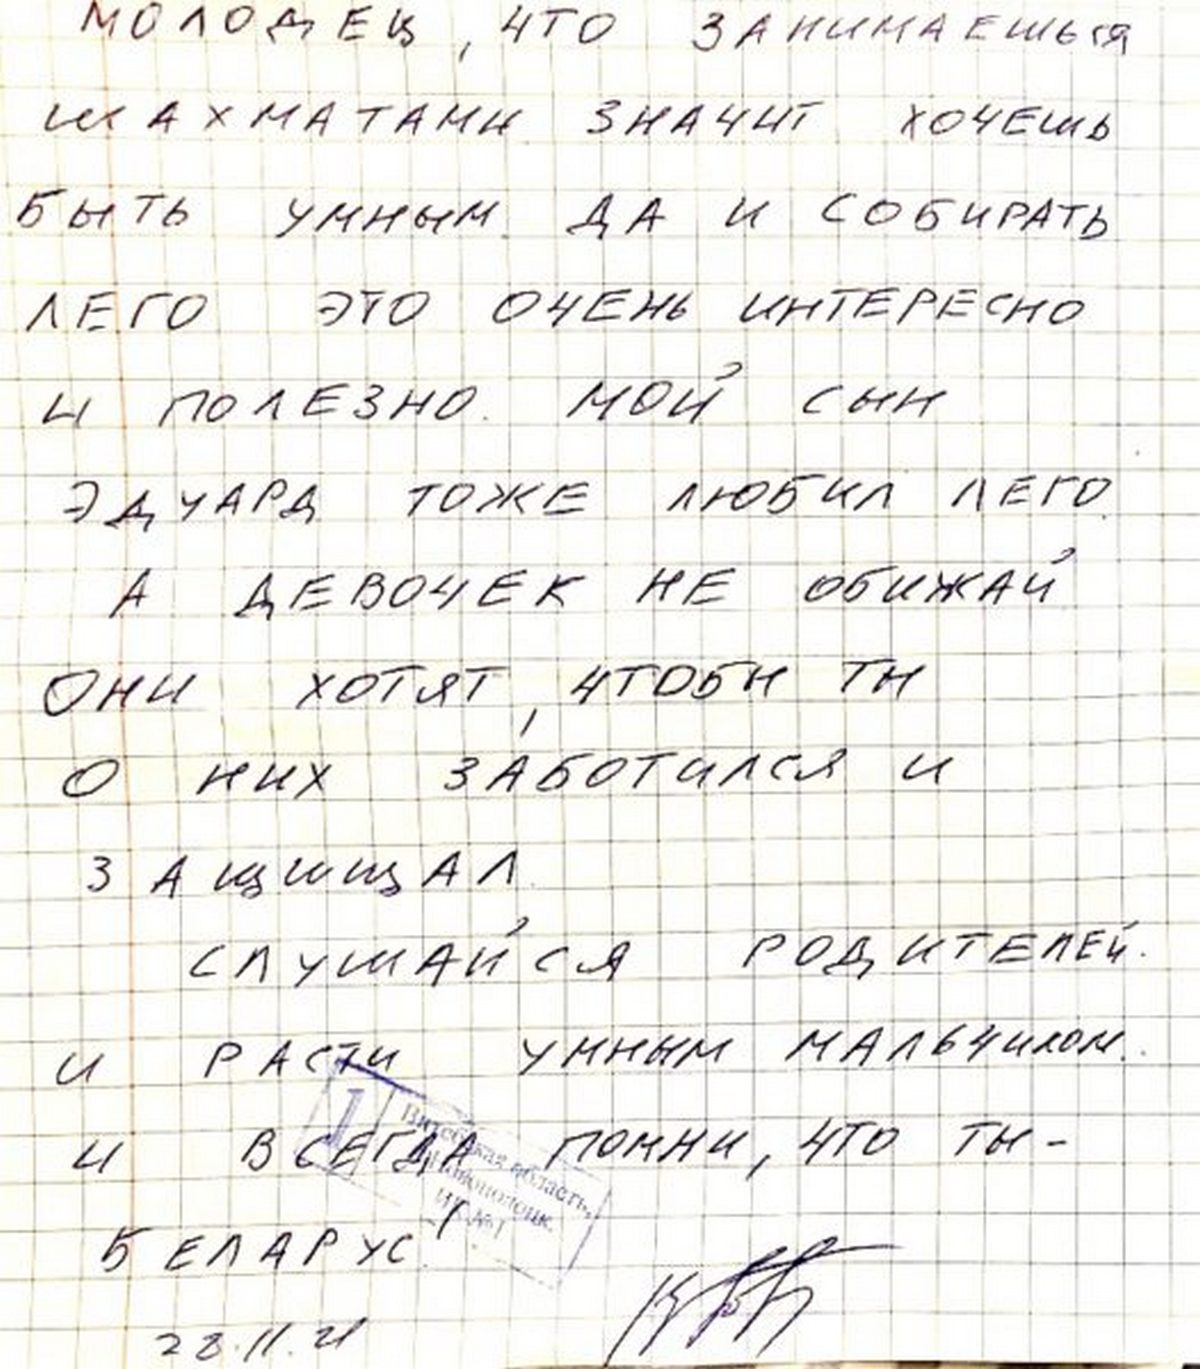 МОЛОДЕЦ, ЧТО ЗАНИМАЕШЬСЯ
ШАХМАТАМИ ЗНАЧИТ ХОЧЕШЬ
БЫТЬ УМНЫМ. ДА И СОБИРАТЬ
ЛЕГО ЭТО ОЧЕНЬ ИНТЕРЕСНО
И ПОЛЕЗНО. МОЙ СЫН
ЭДУАРД ТОЖЕ ЛЮБИЛ ЛЕГО.
А ДЕВОЧЕК НЕ ОБИЖАЙ
ОНИ ХОТЯТ, ЧТОБЫ ТЫ
О НИХ ЗАБОТИЛСЯ И
ЗАЩИЩАЛ.
СЛУШАЙСЯ РОДИТЕЛЕЙ.
И РАСТИ УМНЫМ МАЛЬЧИКОМ.
И ВСЕГДА ПОМНИ, ЧТО ТЫ -
БЕЛАРУС!
1
Витебская область,
г. Новополоцк,
ИК №1
28.11.21